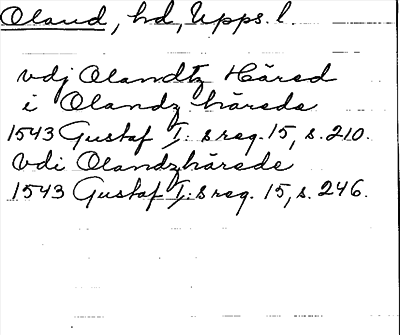 Oland, hd, Upps. l.
vdj Olandtz Häred
i Olandz härede
1543 Gustaf I: s reg. 15, s. 210.
vdi Olandzhärede
1543 Gustaf I: s reg. 15, s. 246.